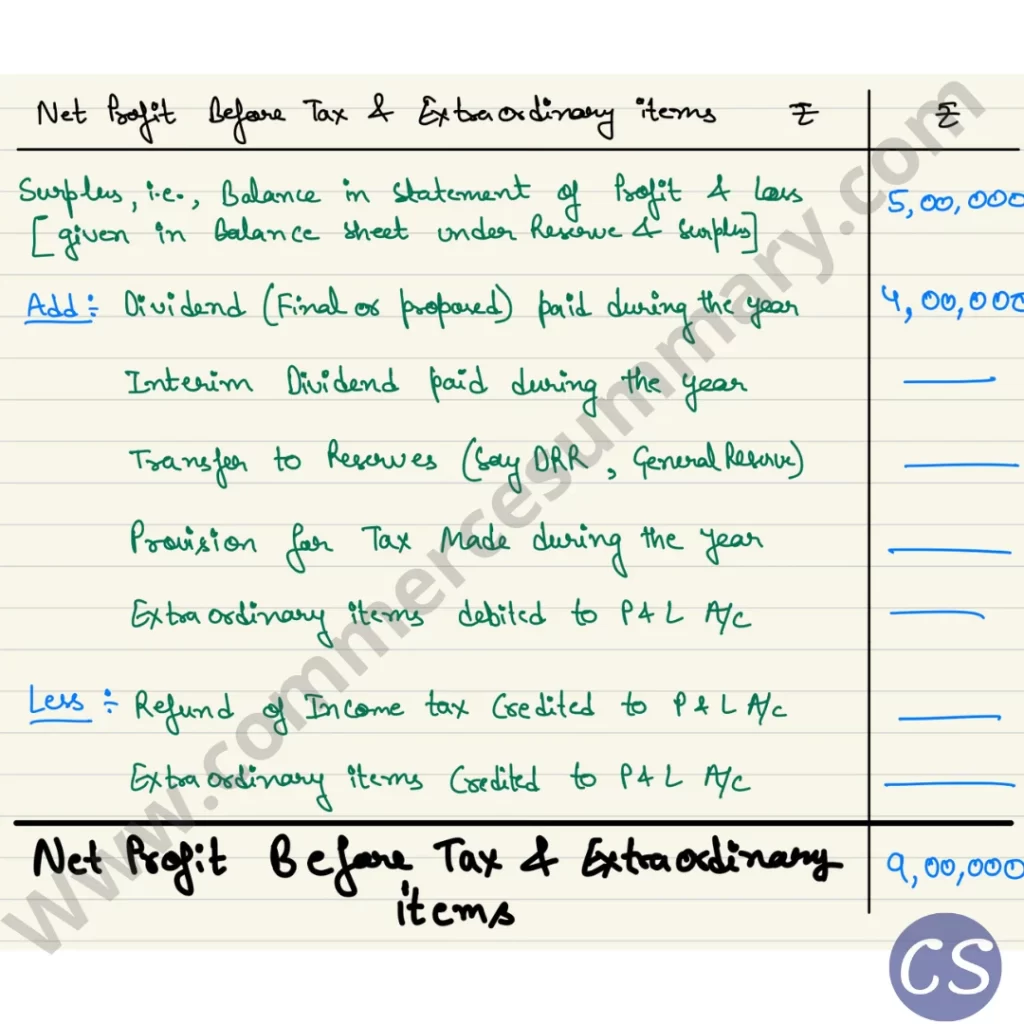 Net Profit Before Tax & Extraordinary items ₹ ₹
Surplus, i.e., Balance in statement of Profit & Loss 5,00,000
[given in Balance sheet under Reserve & Surplus]
Add:- Dividend (Final or proposed) paid during the year 4,00,000
Interim Dividend paid during the year —
Transfer to Reserves (Say DRR, General Reserve) —
Provision for Tax Made during the year —
Extraordinary items debited to P & L A/c —
Less:- Refund of Income tax Credited to P & L A/c —
Extraordinary items Credited to P & L A/c —
Net Profit Before Tax & Extraordinary 9,00,000
items
www.commercesummary.com
CS